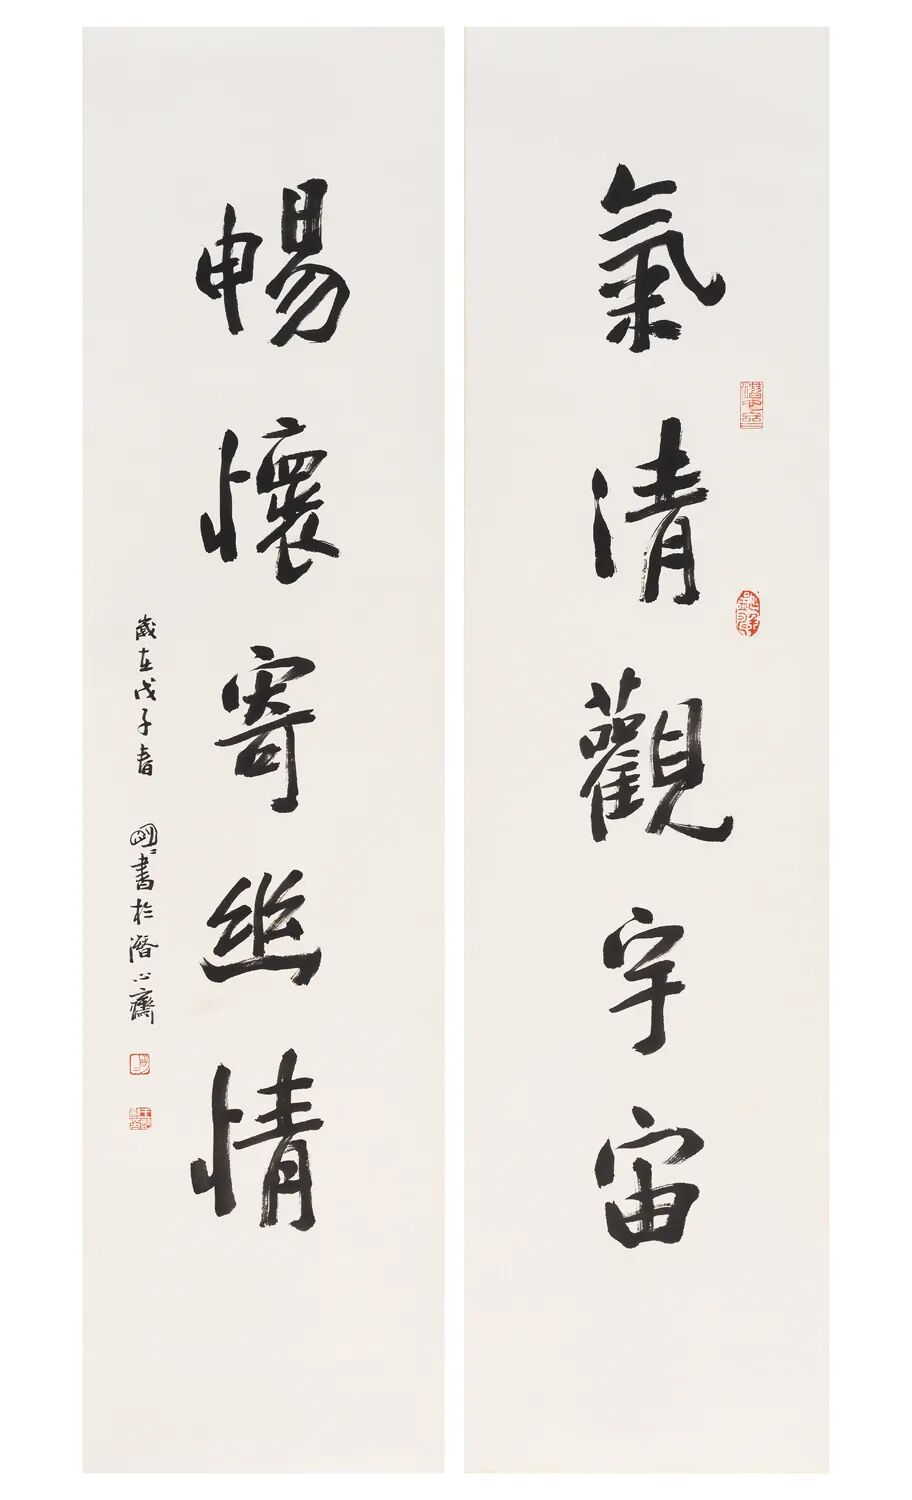 氣清觀宇宙
暢懷寄幽情
歲在戊子春 明〻書於潛心齋